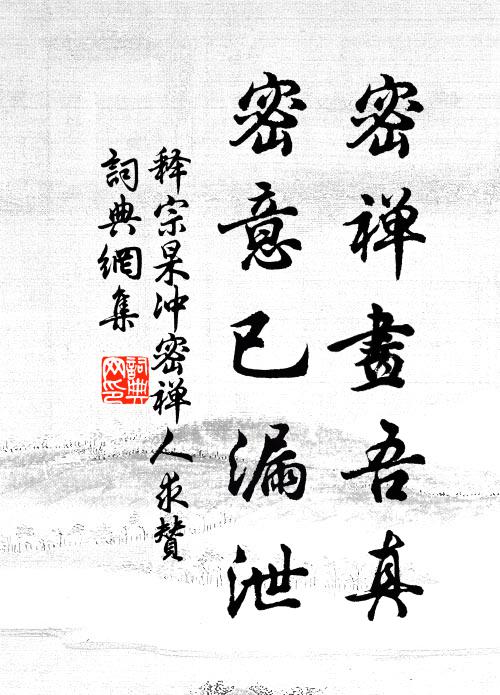 密禅畫吾真
密意已漏泄
释宗杲沖密禅人求贊
詞典網集
詞典
网印